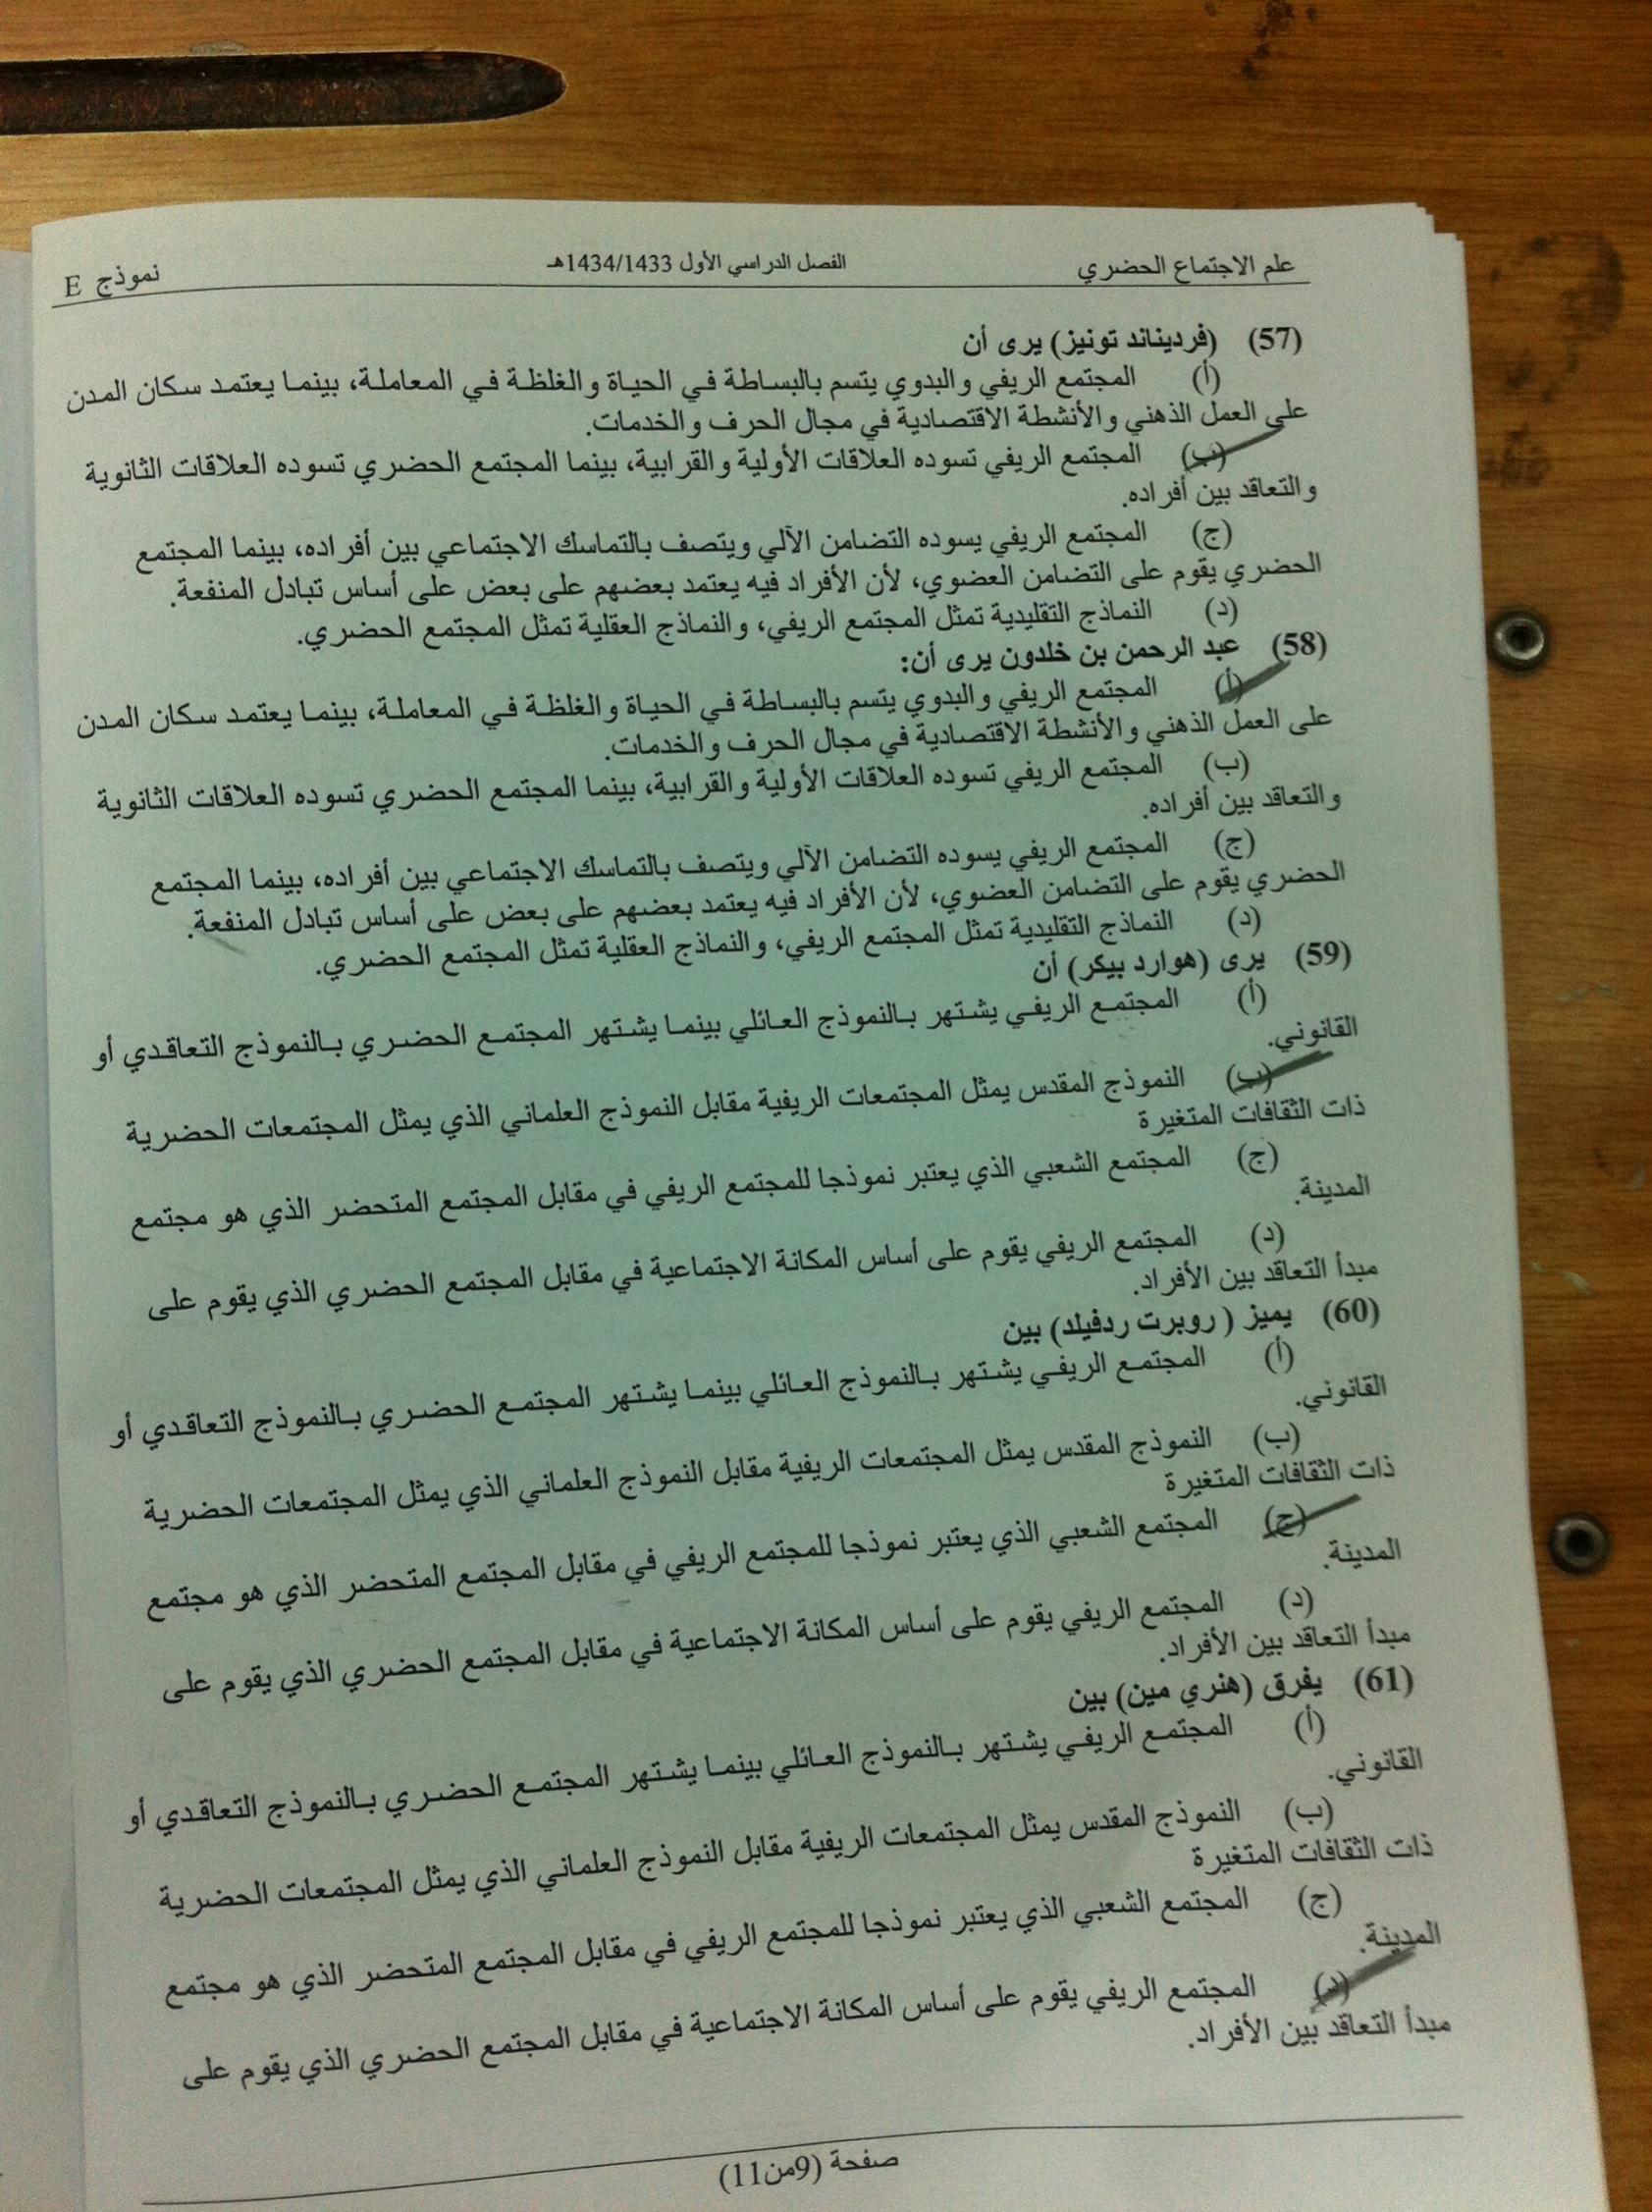 علم الاجتماع الحضري الفصل الدراسي الأول 1434/1433هـ نموذج E
(57) (فرديناند تونيز) يرى أن
(أ) المجتمع الريفي والبدوي يتسم بالبساطة في الحياة والغلظة في المعاملة، بينما يعتمد سكان المدن
على العمل الذهني والأنشطة الاقتصادية في مجال الحرف والخدمات.
(ب) المجتمع الريفي تسوده العلاقات الأولية والقرابية، بينما المجتمع الحضري تسوده العلاقات الثانوية
والتعاقد بين أفراده.
(ج) المجتمع الريفي يسوده التضامن الآلي ويتصف بالتماسك الاجتماعي بين أفراده، بينما المجتمع
الحضري يقوم على التضامن العضوي، لأن الأفراد فيه يعتمد بعضهم على بعض على أساس تبادل المنفعة.
(د) النماذج التقليدية تمثل المجتمع الريفي، والنماذج العقلية تمثل المجتمع الحضري.
(58) عبد الرحمن بن خلدون يرى أن:
(أ) المجتمع الريفي والبدوي يتسم بالبساطة في الحياة والغلظة في المعاملة، بينما يعتمد سكان المدن
على العمل الذهني والأنشطة الاقتصادية في مجال الحرف والخدمات.
(ب) المجتمع الريفي تسوده العلاقات الأولية والقرابية، بينما المجتمع الحضري تسوده العلاقات الثانوية
والتعاقد بين أفراده.
(ج) المجتمع الريفي يسوده التضامن الآلي ويتصف بالتماسك الاجتماعي بين أفراده، بينما المجتمع
الحضري يقوم على التضامن العضوي، لأن الأفراد فيه يعتمد بعضهم على بعض على أساس تبادل المنفعة.
(د) النماذج التقليدية تمثل المجتمع الريفي، والنماذج العقلية تمثل المجتمع الحضري.
(59) يرى (هوارد بيكر) أن
(أ) المجتمع الريفي يشتهر بالنموذج العائلي بينما يشتهر المجتمع الحضري بالنموذج التعاقدي أو
القانوني.
(ب) النموذج المقدس يمثل المجتمعات الريفية مقابل النموذج العلماني الذي يمثل المجتمعات الحضرية
ذات الثقافات المتغيرة
(ج) المجتمع الشعبي الذي يعتبر نموذجا للمجتمع الريفي في مقابل المجتمع المتحضر الذي هو مجتمع
المدينة.
(د) المجتمع الريفي يقوم على أساس المكانة الاجتماعية في مقابل المجتمع الحضري الذي يقوم على
مبدأ التعاقد بين الأفراد.
(60) يميز ( روبرت ردفيلد) بين
(أ) المجتمع الريفي يشتهر بالنموذج العائلي بينما يشتهر المجتمع الحضري بالنموذج التعاقدي أو
القانوني.
(ب) النموذج المقدس يمثل المجتمعات الريفية مقابل النموذج العلماني الذي يمثل المجتمعات الحضرية
ذات الثقافات المتغيرة
(ج) المجتمع الشعبي الذي يعتبر نموذجا للمجتمع الريفي في مقابل المجتمع المتحضر الذي هو مجتمع
المدينة.
(د) المجتمع الريفي يقوم على أساس المكانة الاجتماعية في مقابل المجتمع الحضري الذي يقوم على
مبدأ التعاقد بين الأفراد.
(61) يفرق (هنري مين) بين
(أ) المجتمع الريفي يشتهر بالنموذج العائلي بينما يشتهر المجتمع الحضري بالنموذج التعاقدي أو
القانوني.
(ب) النموذج المقدس يمثل المجتمعات الريفية مقابل النموذج العلماني الذي يمثل المجتمعات الحضرية
ذات الثقافات المتغيرة
(ج) المجتمع الشعبي الذي يعتبر نموذجا للمجتمع الريفي في مقابل المجتمع المتحضر الذي هو مجتمع
المدينة.
(د) المجتمع الريفي يقوم على أساس المكانة الاجتماعية في مقابل المجتمع الحضري الذي يقوم على
مبدأ التعاقد بين الأفراد.
صفحة (9من11)